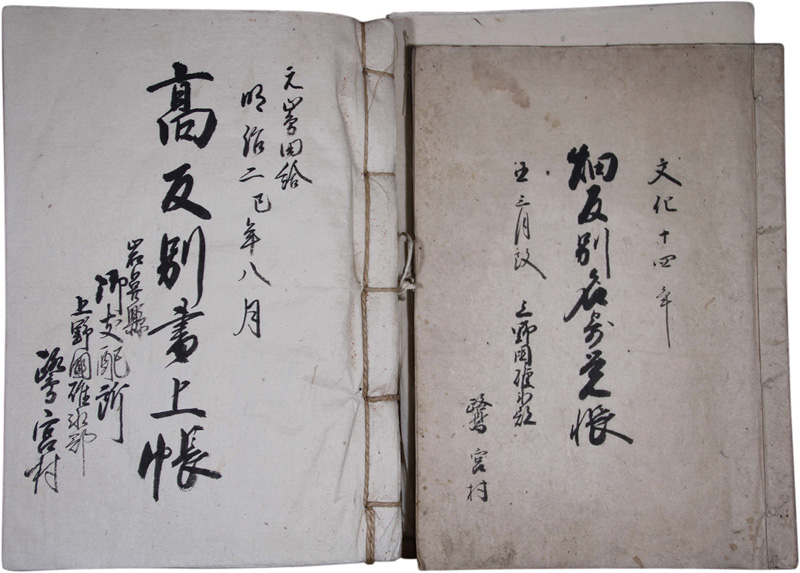 文化十四年
畑反別名寄覚帳
丑三月改
上野国碓氷郡
鷺宮村
明治二巳年八月
高反別書上帳
岩鼻縣
御支配所
上野國碓氷郡
鷺宮村